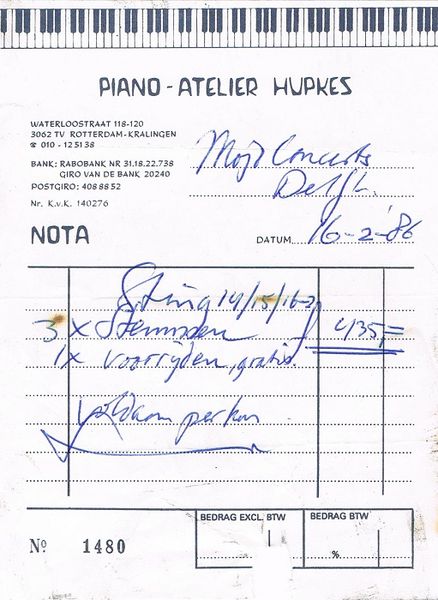 PIANO-ATELIER HUPKES
WATERLOOSTRAAT 118-120
3062 TV ROTTERDAM-KRALINGEN
☎ 010 - 125138
BANK: RABOBANK NR 31.18.22.738
GIRO VAN DE BANK 20240
POSTGIRO: 408 88 52
Nr. K.v.K. 140276
Mojo Concerts
Delft.
NOTA
DATUM 16-2-'86
Sting 14/15/16-2
3 x Stemmen 435,=
1x voorrijden, gratis.
Voldaan per kas
Nº 1480
BEDRAG EXCL. BTW
BEDRAG BTW
%